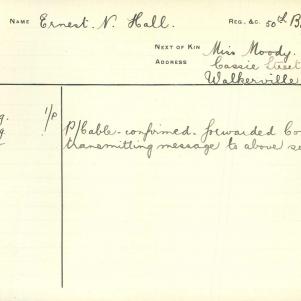 NAME Ernest. N. Hall. REG. &C. 50th B
NEXT OF KIN Miss Moody.
ADDRESS Cassie Street
Walkerville
g. 1/P
P/Cable - confirmed. forwarded Co
transmitting message to above se